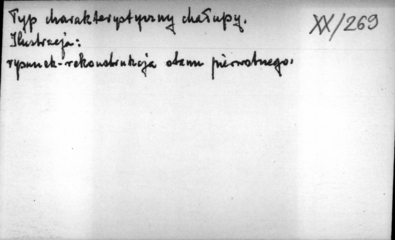 Typ charakterystyczny chałupy.
XX/269
Ilustracja:
rysunek-rekonstrukcja stanu pierwotnego.